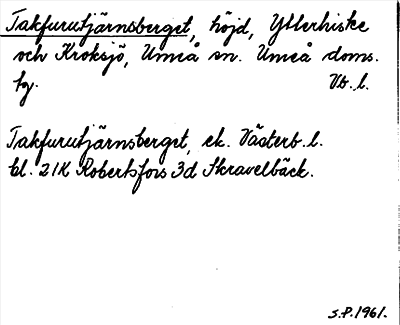 Takfurutjärnsberget, höjd, Ytterhiske
och Kroksjö, Umeå sn. Umeå doms.
tg. Vb. l.
Takfurutjärnsberget, ek. Västerb. l.
bl. 21K Robertsfors 3d Skravelbäck.
S.P. 1961.